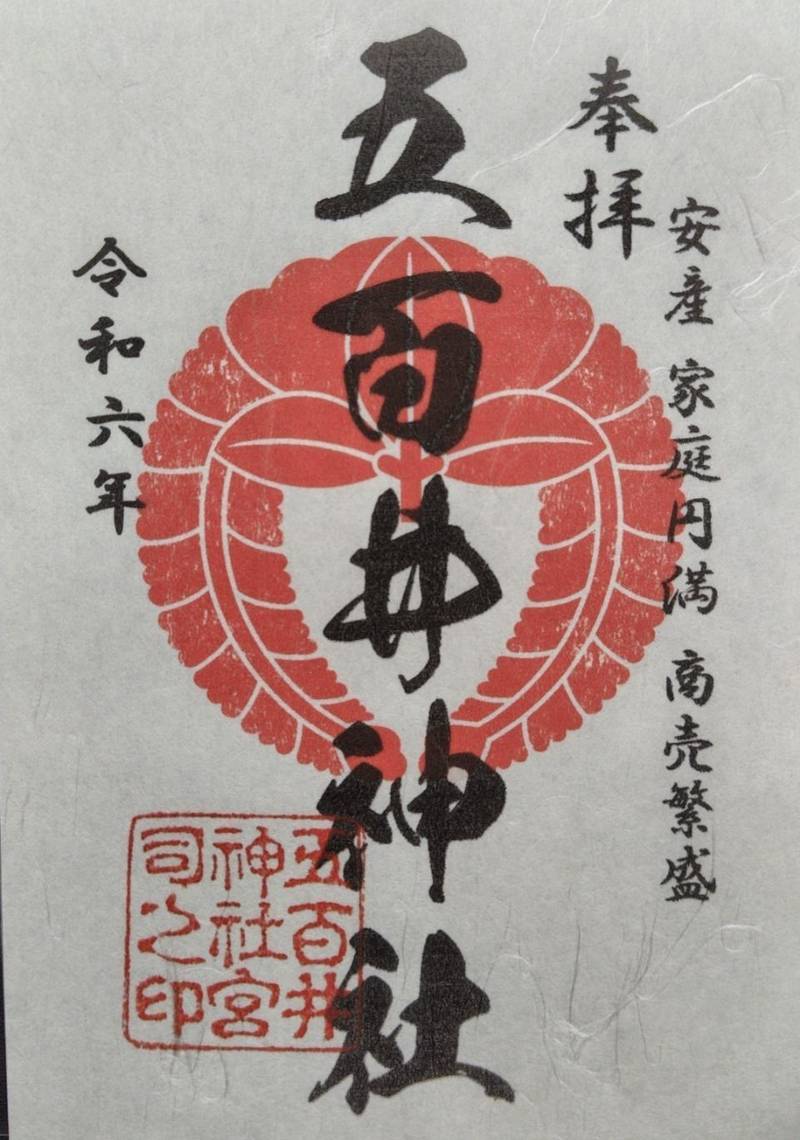 奉拝
安産 家庭円満 商売繁盛
五百井神社
令和六年
五百井
神社宮
司之印